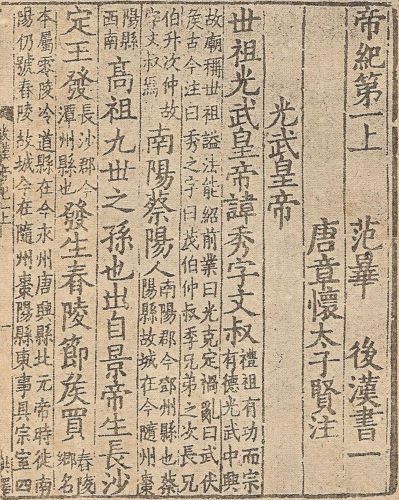 帝紀第一上 范曄 後漢書一
唐章懷太子賢注
光武皇帝
世祖光武皇帝諱秀字文叔 禮祖有功而宗
有德光武中興
故廟稱世祖謚法能紹前業曰光克定禍亂曰武伏
矦古今注曰秀之字曰茂伯仲叔季兄弟之次長兄
伯升次仲故
字文叔焉 南陽蔡陽人 南陽郡今鄧州縣也蔡
陽縣故城在今隨州棗
陽縣
西南 高祖九世之孫也出自景帝生長沙
定王發 長沙郡今
潭州縣也 發生舂陵節矦買 舂陵
鄉名
本屬零陵冷道縣在今永州唐興縣北元帝時徙南
陽仍號舂陵故城今在隨州棗陽縣東事具宗室四